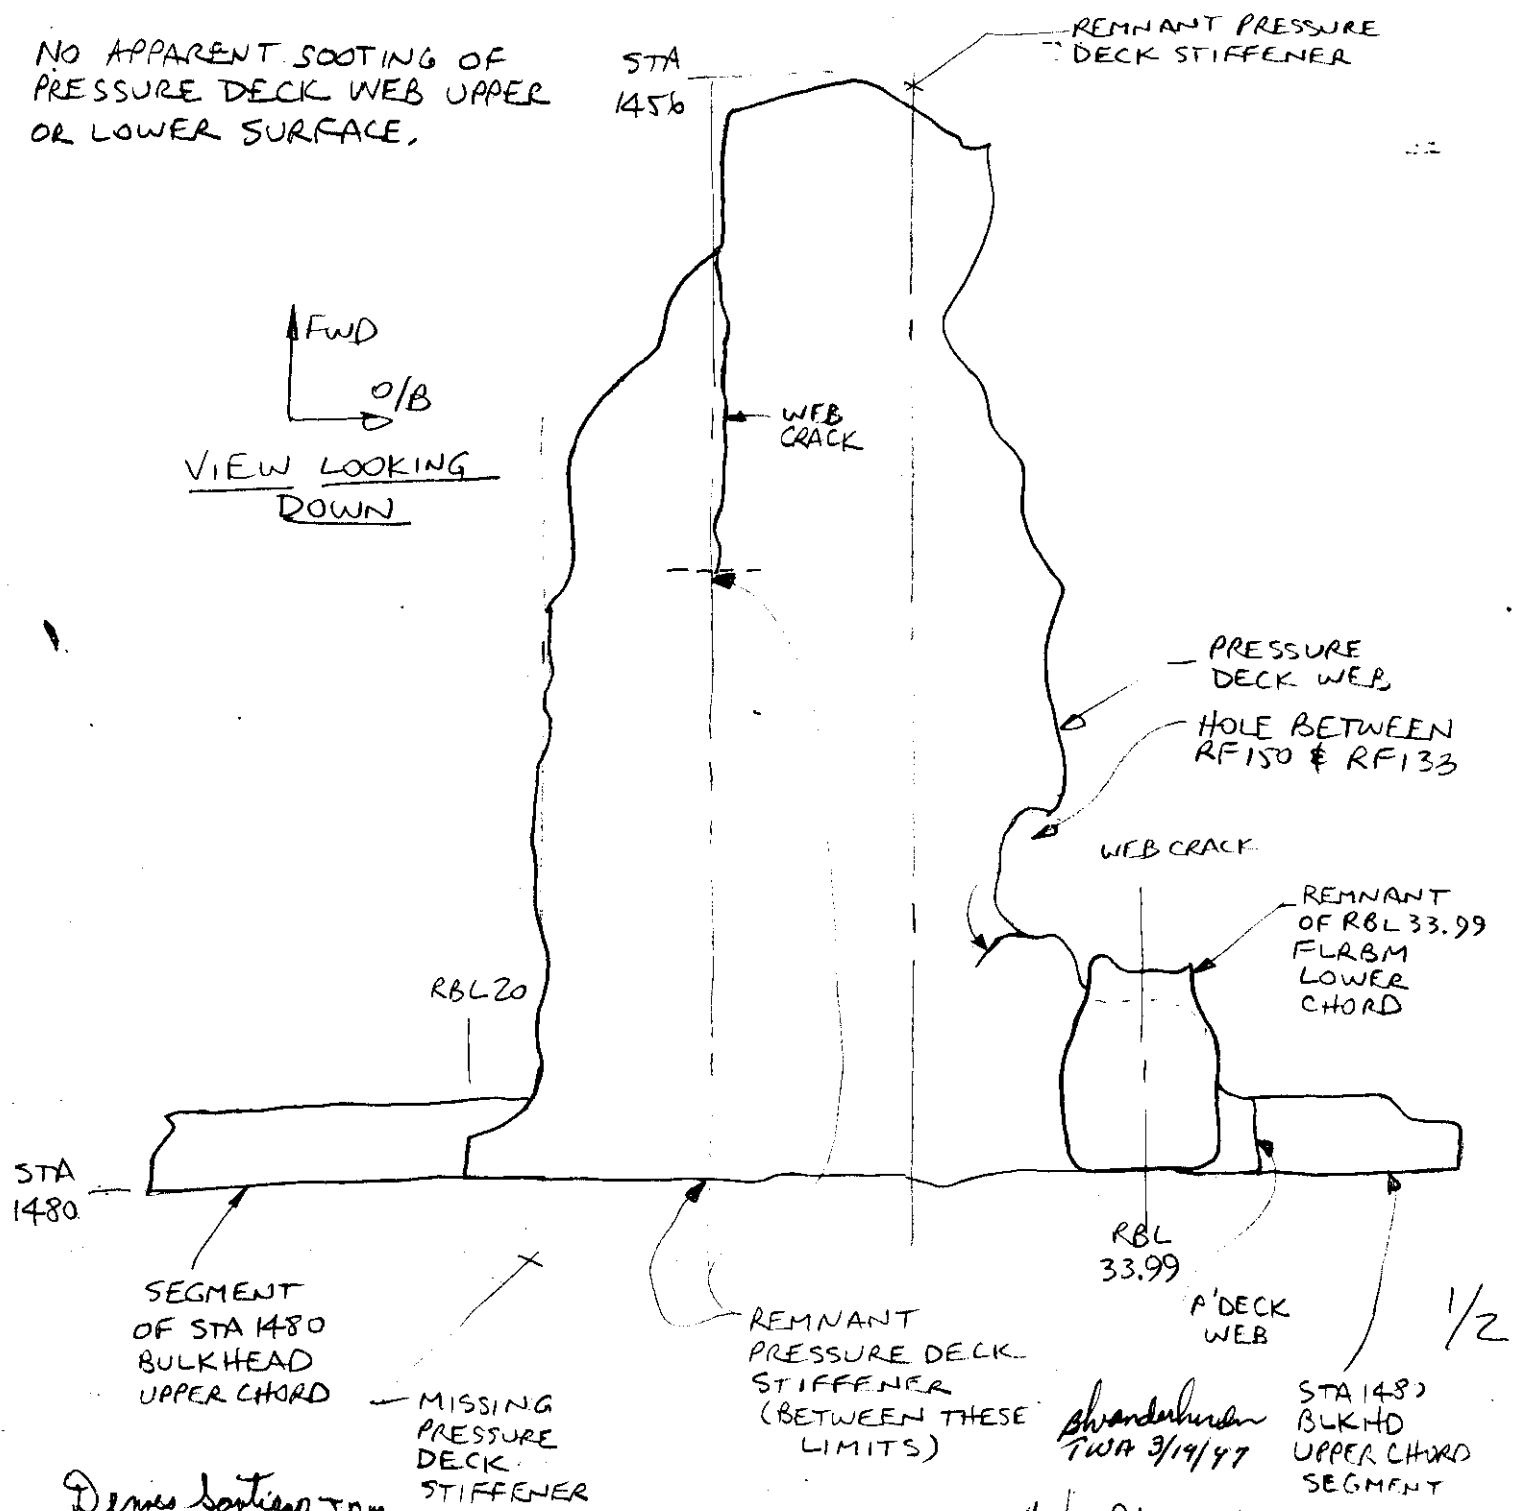 NO APPARENT SOOTING OF
PRESSURE DECK WEB UPPER
OR LOWER SURFACE.
STA
1456
REMNANT PRESSURE
DECK STIFFENER
FWD
O/B
VIEW LOOKING
DOWN
WEB
CRACK
PRESSURE
DECK WEB
HOLE BETWEEN
RF150 & RF133
WEB CRACK
REMNANT
OF RBL 33.99
FLRBM
LOWER
CHORD
RBL 20
STA
1480
RBL
33.99
SEGMENT
OF STA 1480
BULKHEAD
UPPER CHORD
MISSING
PRESSURE
DECK
STIFFENER
REMNANT
PRESSURE DECK
STIFFENER
(BETWEEN THESE
LIMITS)
P'DECK
WEB
1/2
STA 1480
BLKHD
UPPER CHORD
SEGMENT
TWA 3/19/97